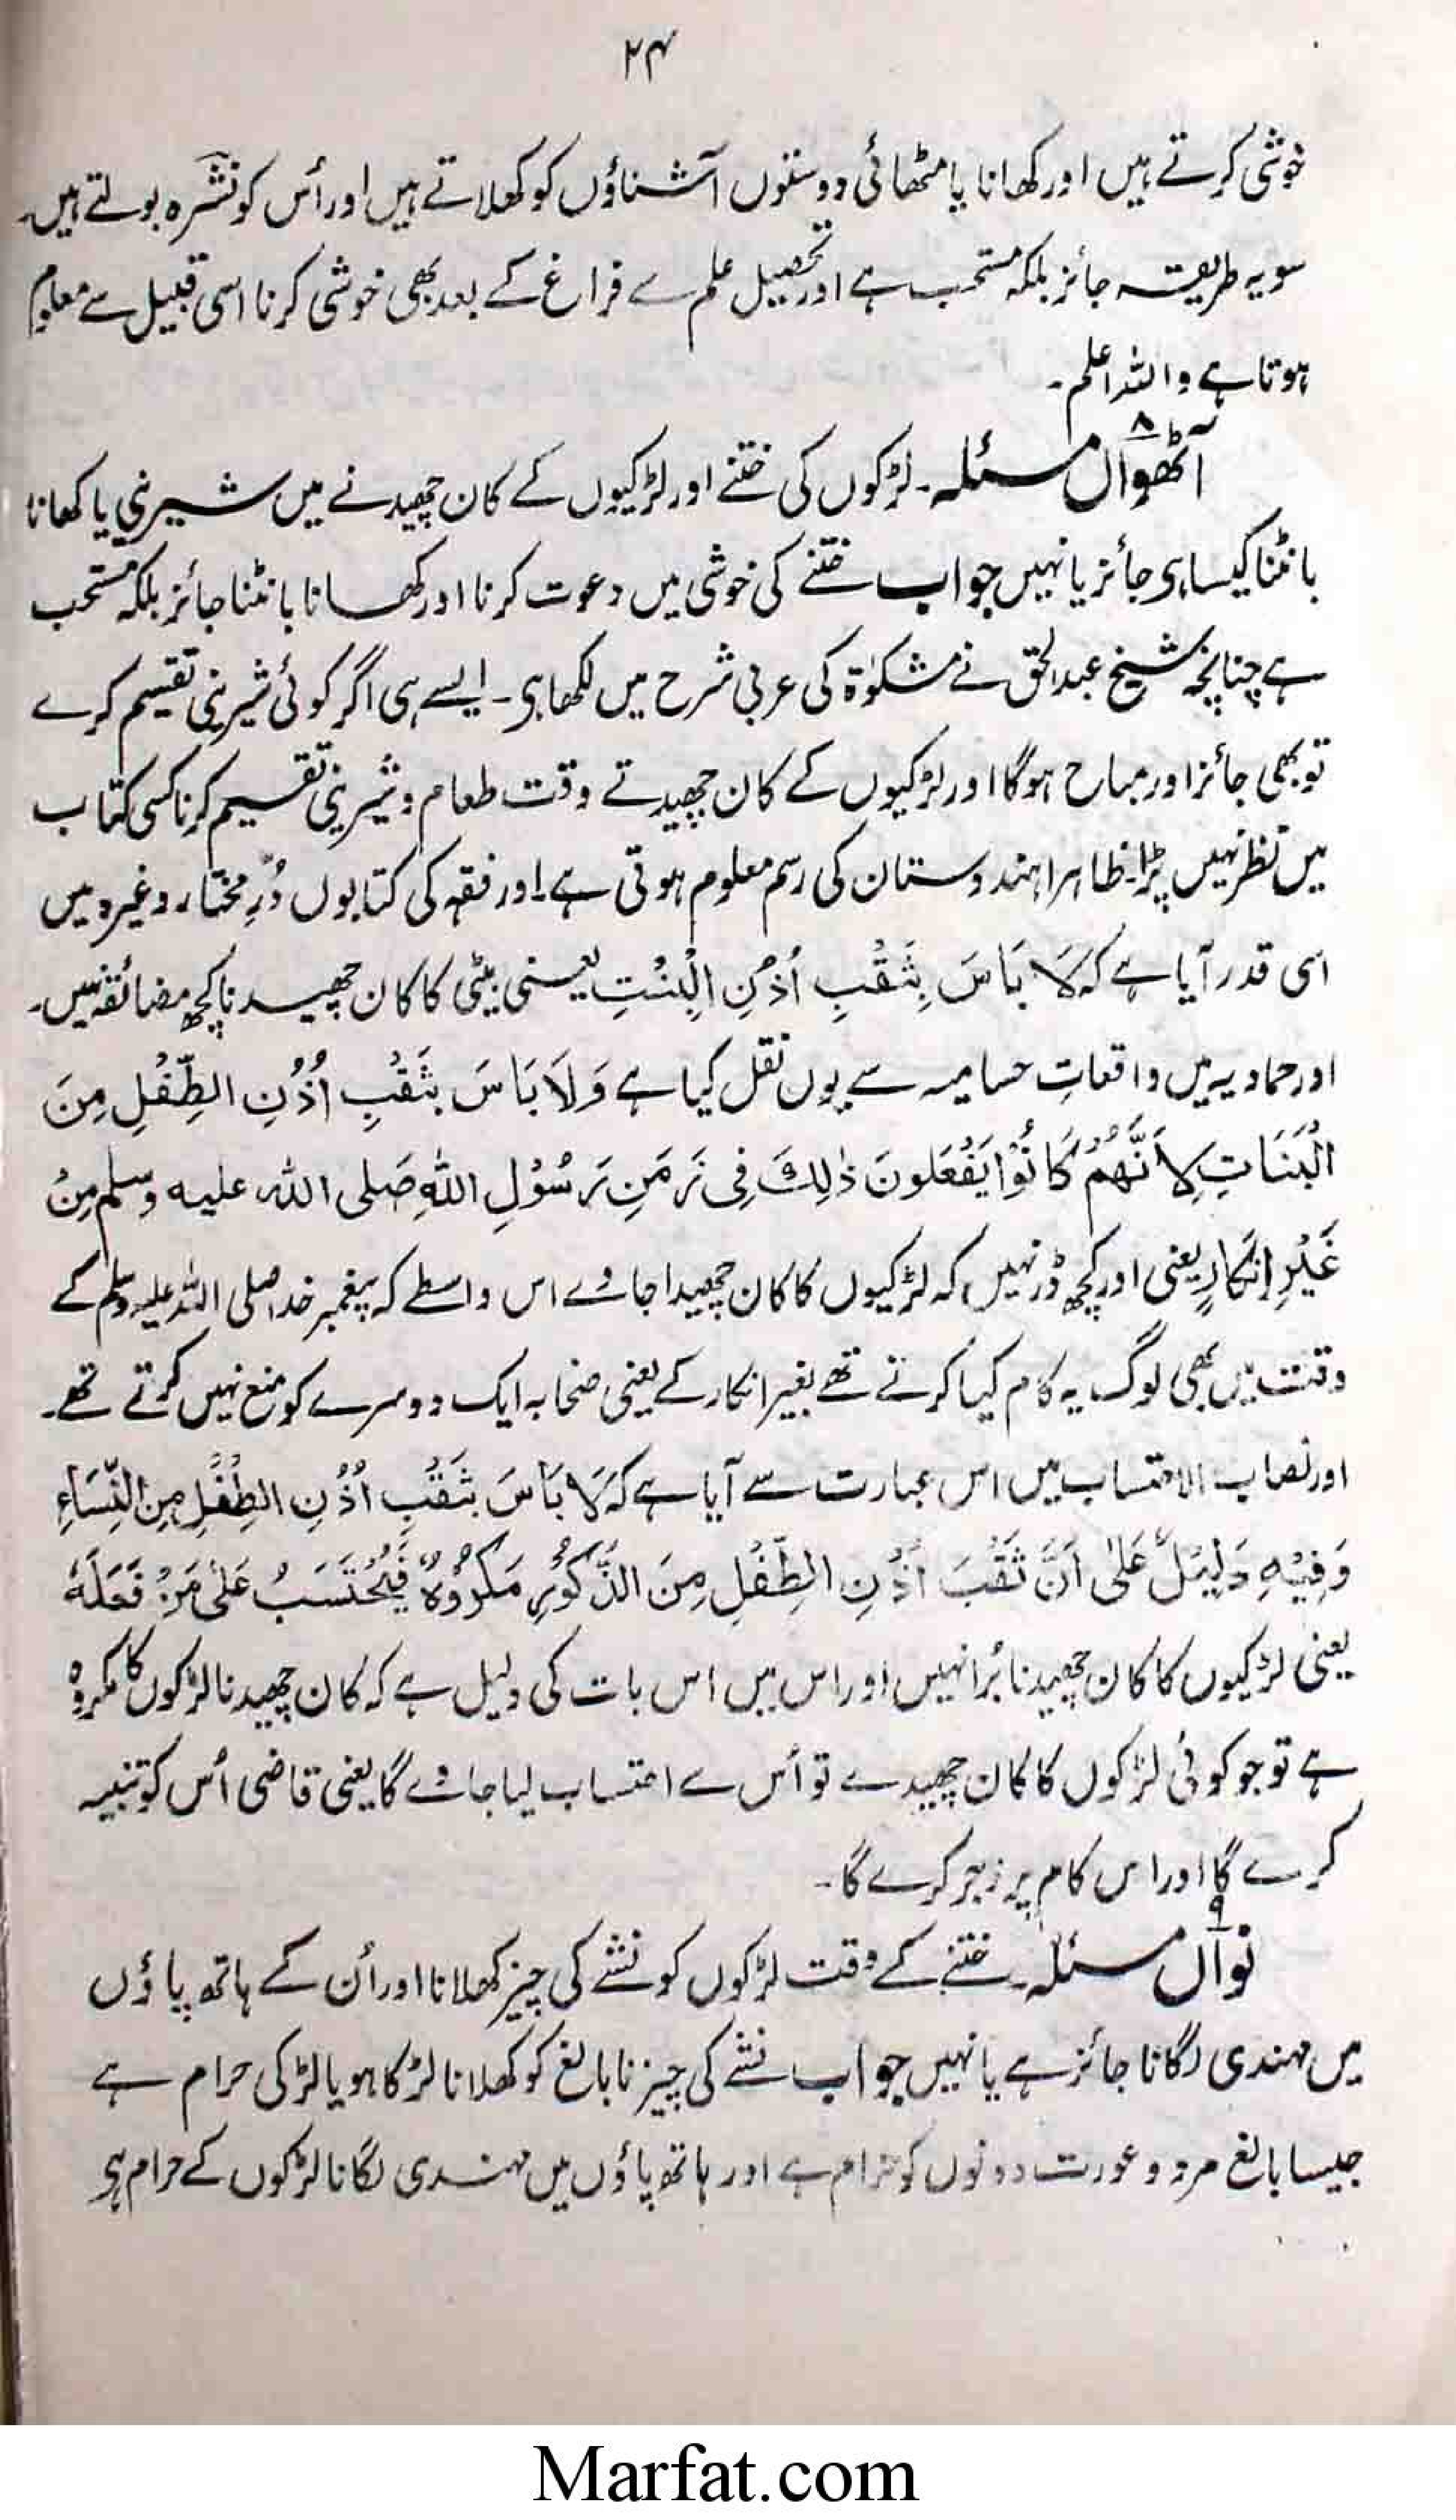 ۲۴
خوشی کرتے ہیں اور کھانا یا مٹھائی دوستوں آشناؤں کو کھلاتے ہیں اور اُس کو نشرہ بولتے ہیں۔
سو یہ طریقہ جائز بلکہ مستحب ہے اور تحصیل علم سے فراغ کے بعد بھی خوشی کرنا اسی قبیل سے معلوم
ہوتا ہے واللہ اعلم۔
آٹھواں ۸ مسئلہ۔ لڑکوں کی ختنے اور لڑکیوں کے کان چھیدنے میں شیرینی یا کھانا
بانٹنا کیسا ہی جائز یا نہیں جواب ختنے کی خوشی میں دعوت کرنا اور کھانا بانٹنا جائز بلکہ مستحب
ہے چنانچہ شیخ عبدالحق نے مشکوٰۃ کی عربی شرح میں لکھا ہی۔ ایسے ہی اگر کوئی شیرینی تقسیم کرے
تو بھی جائز اور مباح ہوگا اور لڑکیوں کے کان چھیدتے وقت طعام و شیرینی تقسیم کرنا کسی کتاب
میں نظر نہیں پڑا۔ ظاہرا ہندوستان کی رسم معلوم ہوتی ہے۔ اور فقہ کی کتابوں دُرِّ مختار وغیرہ میں
اسی قدر آیا ہے کہ لَا بَاسَ بِثَقْبِ اُذُنِ الْبِنْتِ یعنی بیٹی کا کان چھیدنا کچھ مضائقہ نہیں۔
اور حمادیہ میں واقعاتِ حسامیہ سے یوں نقل کیا ہے وَلَا بَاسَ بِثَقْبِ اُذُنِ الطِّفْلِ مِنَ
الْبَنَاتِ لِاَنَّهُمْ کَانُوْا یَفْعَلُونَ ذٰلِكَ فِی زَمَنِ رَسُوْلِ اللّٰهِ صَلی اللّٰه علیه وسلم مِنْ
غَیْرِ اِنْکَارٍ یعنی اور کچھ ڈر نہیں کہ لڑکیوں کا کان چھیدا جاوے اس واسطے کہ پیغمبر خدا صلی اللہ علیہ وسلم کے
وقت میں بھی لوگ یہ کام کیا کرتے تھے بغیر انکار کے یعنی صحابہ ایک دوسرے کو منع نہیں کرتے تھے۔
اور نصاب الاحتساب میں اس عبارت سے آیا ہے کہ لَا بَاسَ بِثَقْبِ اُذُنِ الطِّفْلِ مِنَ النِّسَاءِ
وَفِیْهِ دَلِیْلٌ عَلٰی اَنَّ ثَقْبَ اُذُنِ الطِّفْلِ مِنَ الذَّکُوْرِ مَکْرُوْهٌ فَیُحْتَسَبُ عَلٰی مَنْ فَعَلَهٗ
یعنی لڑکیوں کا کان چھیدنا بُرا نہیں اور اس میں اس بات کی دلیل ہے کہ کان چھیدنا لڑکوں کا مکروہ
ہے تو جو کوئی لڑکوں کا کان چھیدے تو اُس سے احتساب لیا جاوے گا یعنی قاضی اُس کو تنبیہ
کرے گا اور اس کام پر زجر کرے گا۔
نواں ۹ مسئلہ۔ ختنے کے وقت لڑکوں کو نشے کی چیز کھلانا اور اُن کے ہاتھ پاؤں
میں مہندی لگانا جائز ہے یا نہیں جواب نشے کی چیز نابالغ کو کھلانا لڑکا ہو یا لڑکی حرام ہے
جیسا بالغ مرد و عورت دونوں کو حرام ہے اور ہاتھ پاؤں میں مہندی لگانا لڑکوں کے حرام ہی
Marfat.com